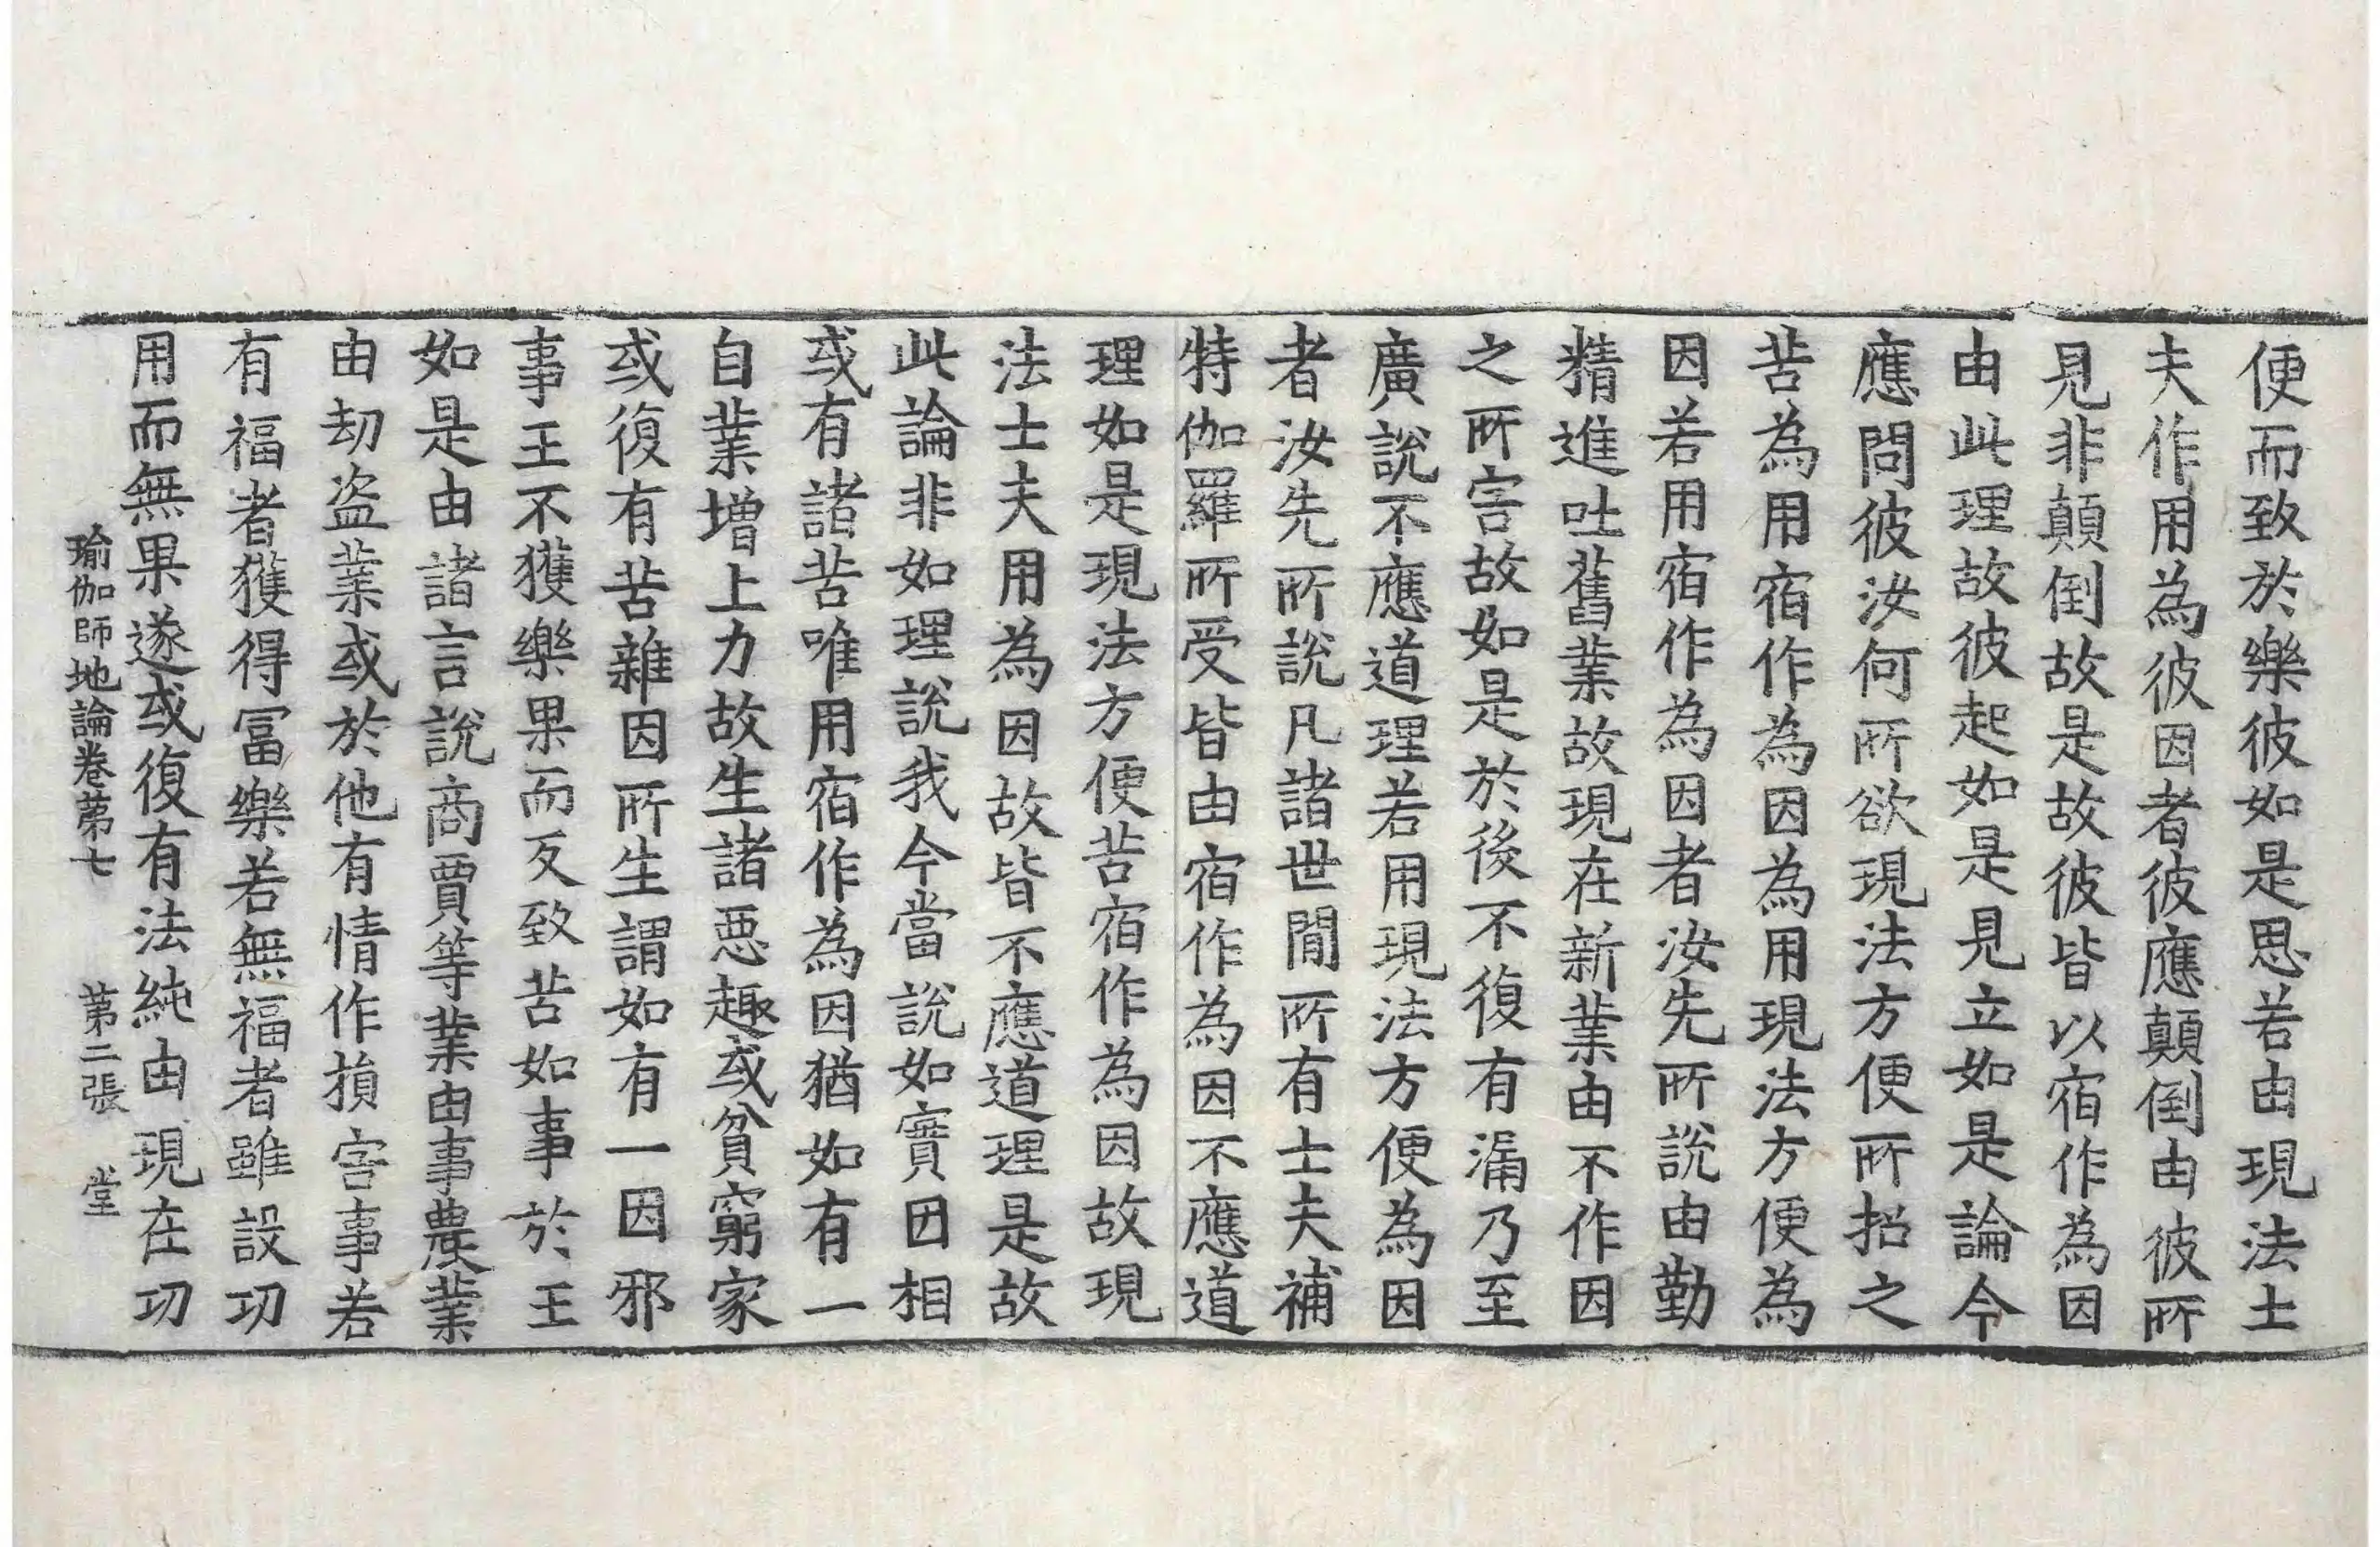 便而致於樂彼如是思若由現法士
夫作用為彼因者彼應顛倒由彼所
見非顛倒故是故彼皆以宿作為因
由此理故彼起如是見立如是論今
應問彼汝何所欲現法方便所招之
苦為用宿作為因為用現法方便為
因若用宿作為因者汝先所說由勤
精進吐舊業故現在新業由不作因
之所害故如是於後不復有漏乃至
廣說不應道理若用現法方便為因
者汝先所說凡諸世間所有士夫補
特伽羅所受皆由宿作為因不應道
理如是現法方便苦宿作為因故現
法士夫用為因故皆不應道理是故
此論非如理說我今當說如實因相
或有諸苦唯用宿作為因猶如有一
自業增上力故生諸惡趣或貧窮家
或復有苦雜因所生謂如有一因邪
事王不獲樂果而反致苦如事於王
如是由諸言說商賈等業由事農業
由劫盜業或於他有情作損害事若
有福者獲得冨樂若無福者雖設功
用而無果遂或復有法純由現在功
瑜伽師地論卷第七 第二張 堂